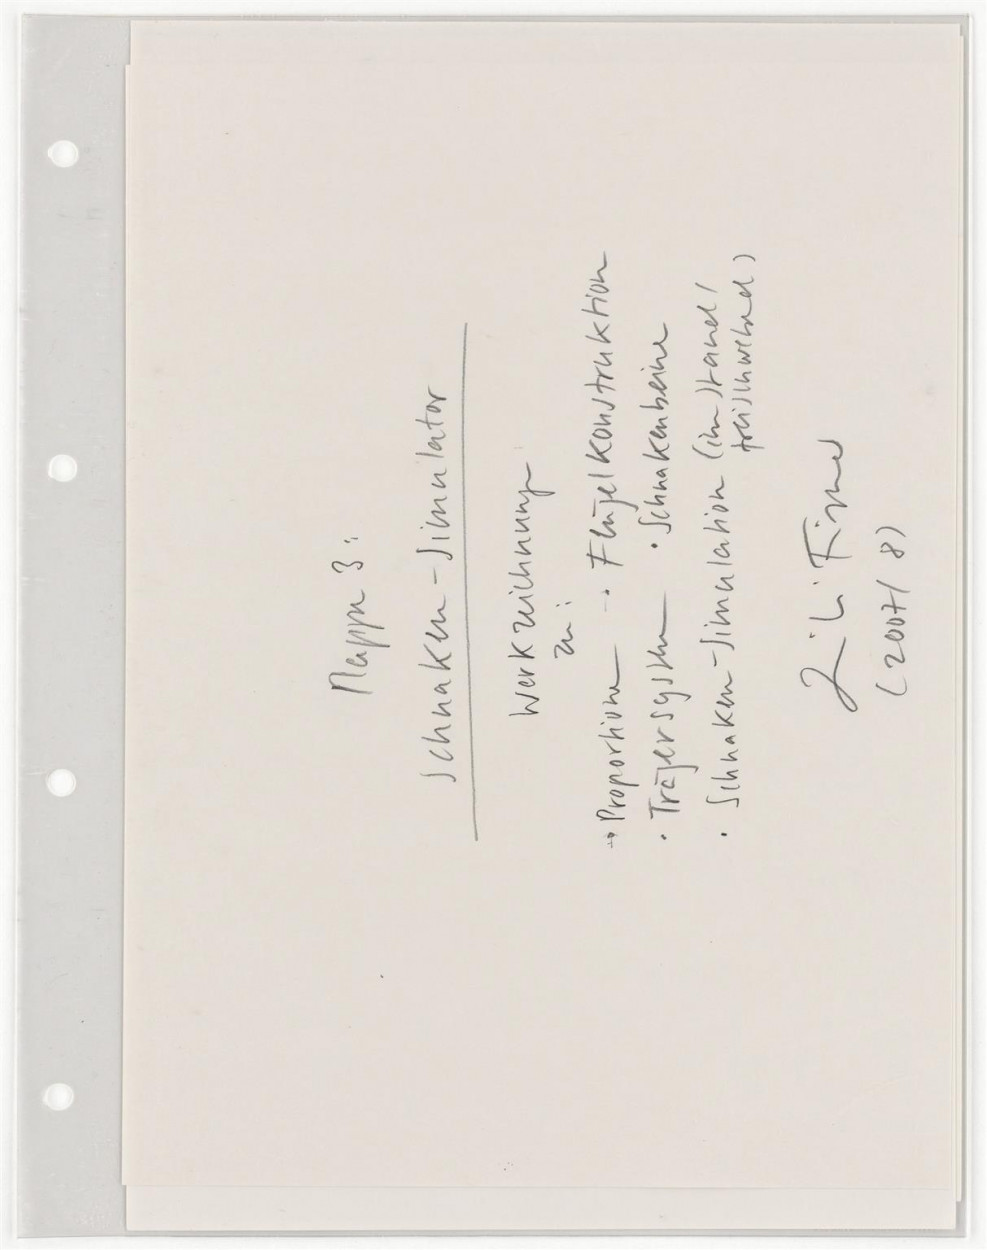 Mappe 3:
Schnaken-Simulator
Werkzeichnungen
zu:
→ Proportionen → Flügelkonstruktion
• Trägersystem • Schnakenbeine
• Schnaken-Simulation (im Stand/
freischwebend)
(2007/8)